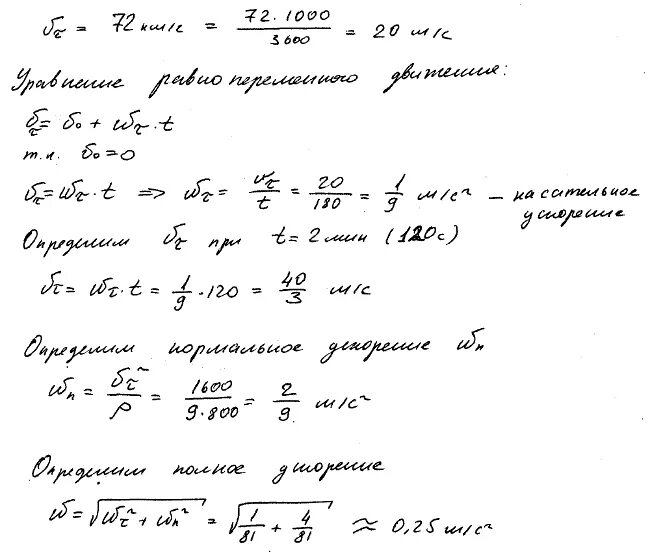 υτ = 72 км/с = 72·1000/3600 = 20 м/с
Уравнение равнопеременного движения:
υτ = υ₀ + wτ·t
т.к. υ₀=0
υτ=wτ·t => wτ = υτ/t = 20/180 = 1/9 м/с² – касательное
ускорение
Определим υτ при t=2мин (120с)
υτ = wτ·t = 1/9·120 = 40/3 м/с
Определим нормальное ускорение wn
wn = υτ²/ρ = 1600/9·800 = 2/9 м/с²
Определим полное ускорение
w=√wτ²+wn² = √1/81 + 4/81 ≈ 0,25 м/с²